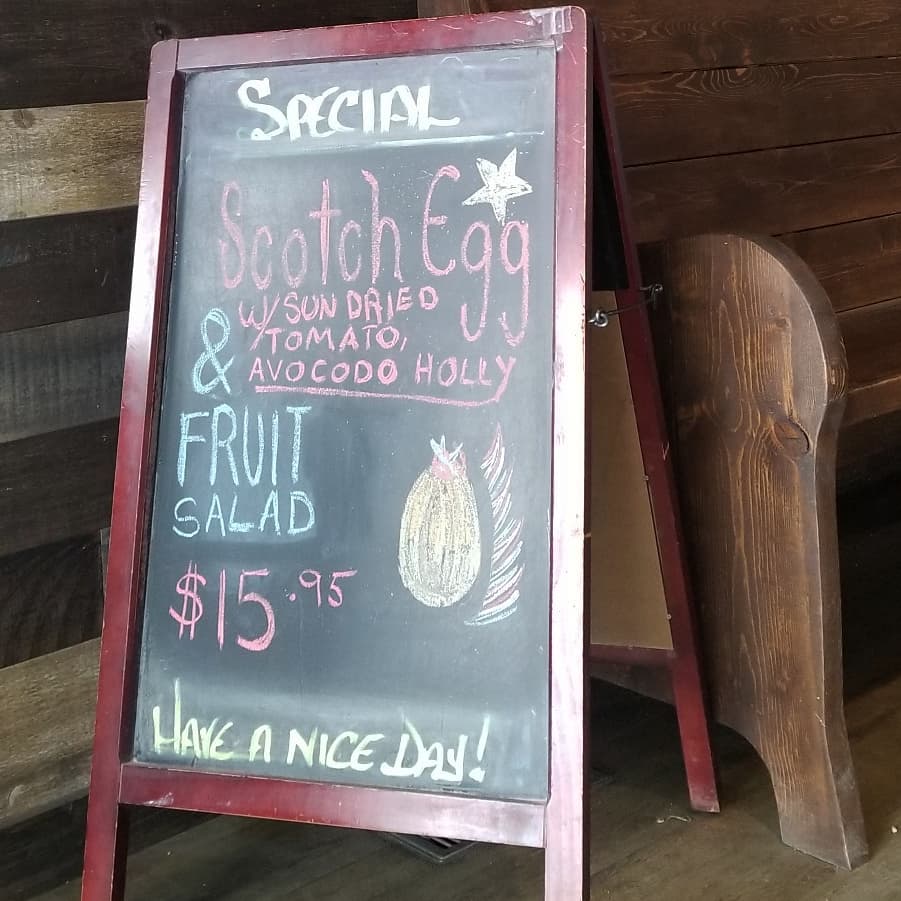 SPECIAL
Scotch Egg
W/SUN DRIED
TOMATO,
& AVOCODO HOLLY
FRUIT
SALAD
$15.95
HAVE A NICE DAY!